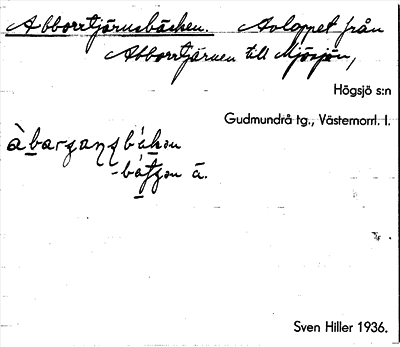 Abborrtjärnsbäcken. Avloppet från
Abborrtjärnen till Mjösjön,
Högsjö s:n
Gudmundrå tg., Västernorrl. l.
Sven Hiller 1936.